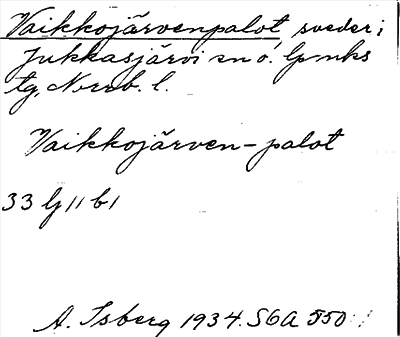 Vaikkojärvenpalot, sveder i
Jukkasjärvi sn o. lpmks
tg, Norrb. l.
Vaikkojärven-palot
33 lj 11 b 1
A. Isberg 1934. S6A 550